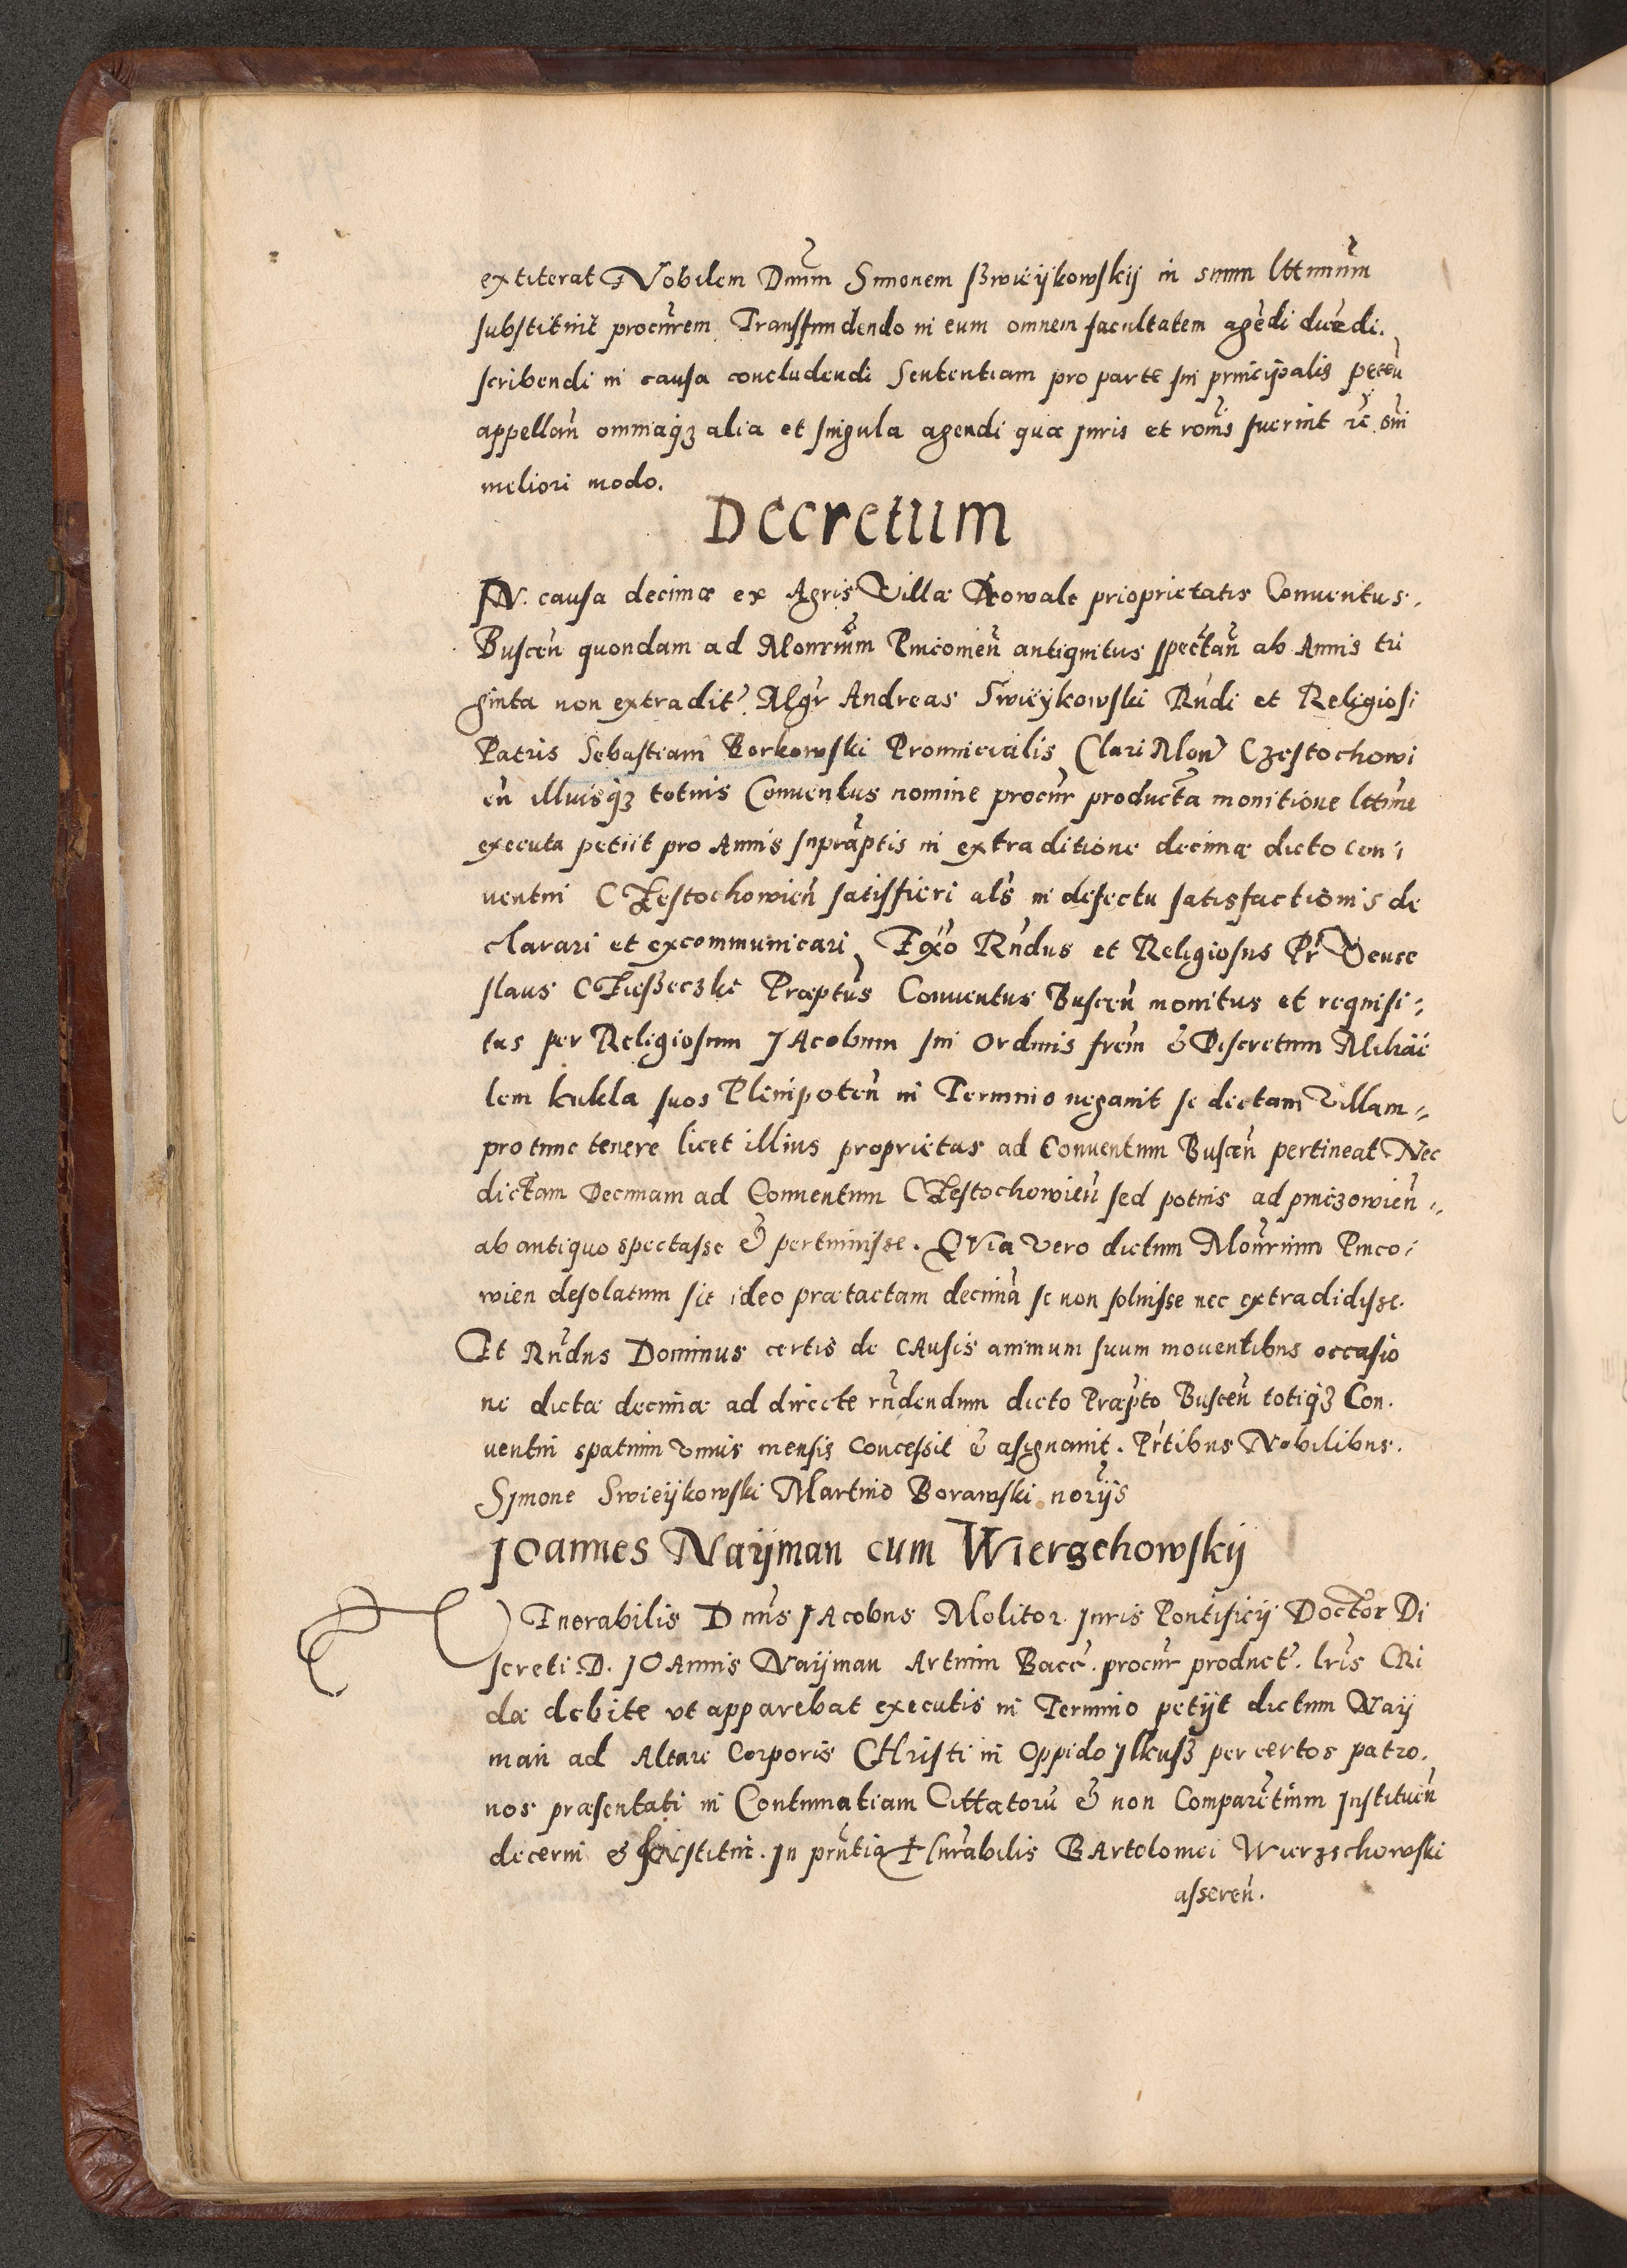 extiterat Nobilem Dnum Simonem Swieijkowskij in suum lttimum
substituit procurem Transfundendo in eum omnem facultatem agēdi ducēdi.
scribendi in causa concludendi Sententiam pro parte sui principalis peteñ
appellañ omniaqȝ alia et singula agendi quæ juris et roñis fuerint et oñi
meliori modo.
Decretum
IN causa decimæ ex Agris Villæ Kowale prioprietatis Conuentus.
Busceñ quondam ad Monrium Pincouieñ antiquitus spectañ ab Annis tri
ginta non extradit Mgr Andreas Swieykowski Rñdi et Religiosi
Patris Sebastiani Borkowski Prouincialis Clari Mon Czestochowi
eñ illiusqȝ totius Conuentus nomine procur producta monitione lttime
executa petiit pro Annis supraptis in extraditione decimæ dicto con
uentui CZestochowieñ satisfieri als in defectu satisfactionis de
clarari et excommunicari, Exo Rñdus et Religiosus Pr Vence
slaus CZieszeczki Præptus Conuentus Busceñ monitus et requisi-
tus per Religiosum JAcobum sui Ordinis frem & Discretum Michäe
lem kukla suos Plenipoteñ in Termino negauit se dictam Villam
pro tunc tenere licet illius proprietas ad Conuentum Busceñ pertineat Nec
dictam Decimam ad Conuentum CZestochowieñ sed potius ad pinczowieñ
ab antiquo spectasse & pertinuisse. QVia vero dictum Monrium Pinco-
wien desolatum sit ideo prætactam decimā se non soluisse nec extradidisse.
Et Rñdus Dominus certis de CAusis animum suum mouentibus occasio
ne dictæ decimæ ad directe rñdendum dicto Præpto Busceñ totiqȝ Con.
uentui spatium vnius mensis concessit & assignauit. Prtibus Nobilibus.
Symone Swieijkowski Martino Borawski norijs
JOannes Naijman cum Wierzchowskij
VEnerabilis Dnus JAcobus Molitor Juris Pontificij Doctor Di
screti D. JOAnnis Naijman Artium Bacc. procur product. lris CRi
dæ debite vt apparebat executis in Termino petijt dictum Naij
man ad Altare Corporis CHristi in Oppido Jlkusȝ per certos patro.
nos præsentati in Contumatiam Cittatorū & non Comparētium Instituen
decerni & INstitui. In prñtia Hnrabilis BArtolomei Wierzchowski
assereñ.